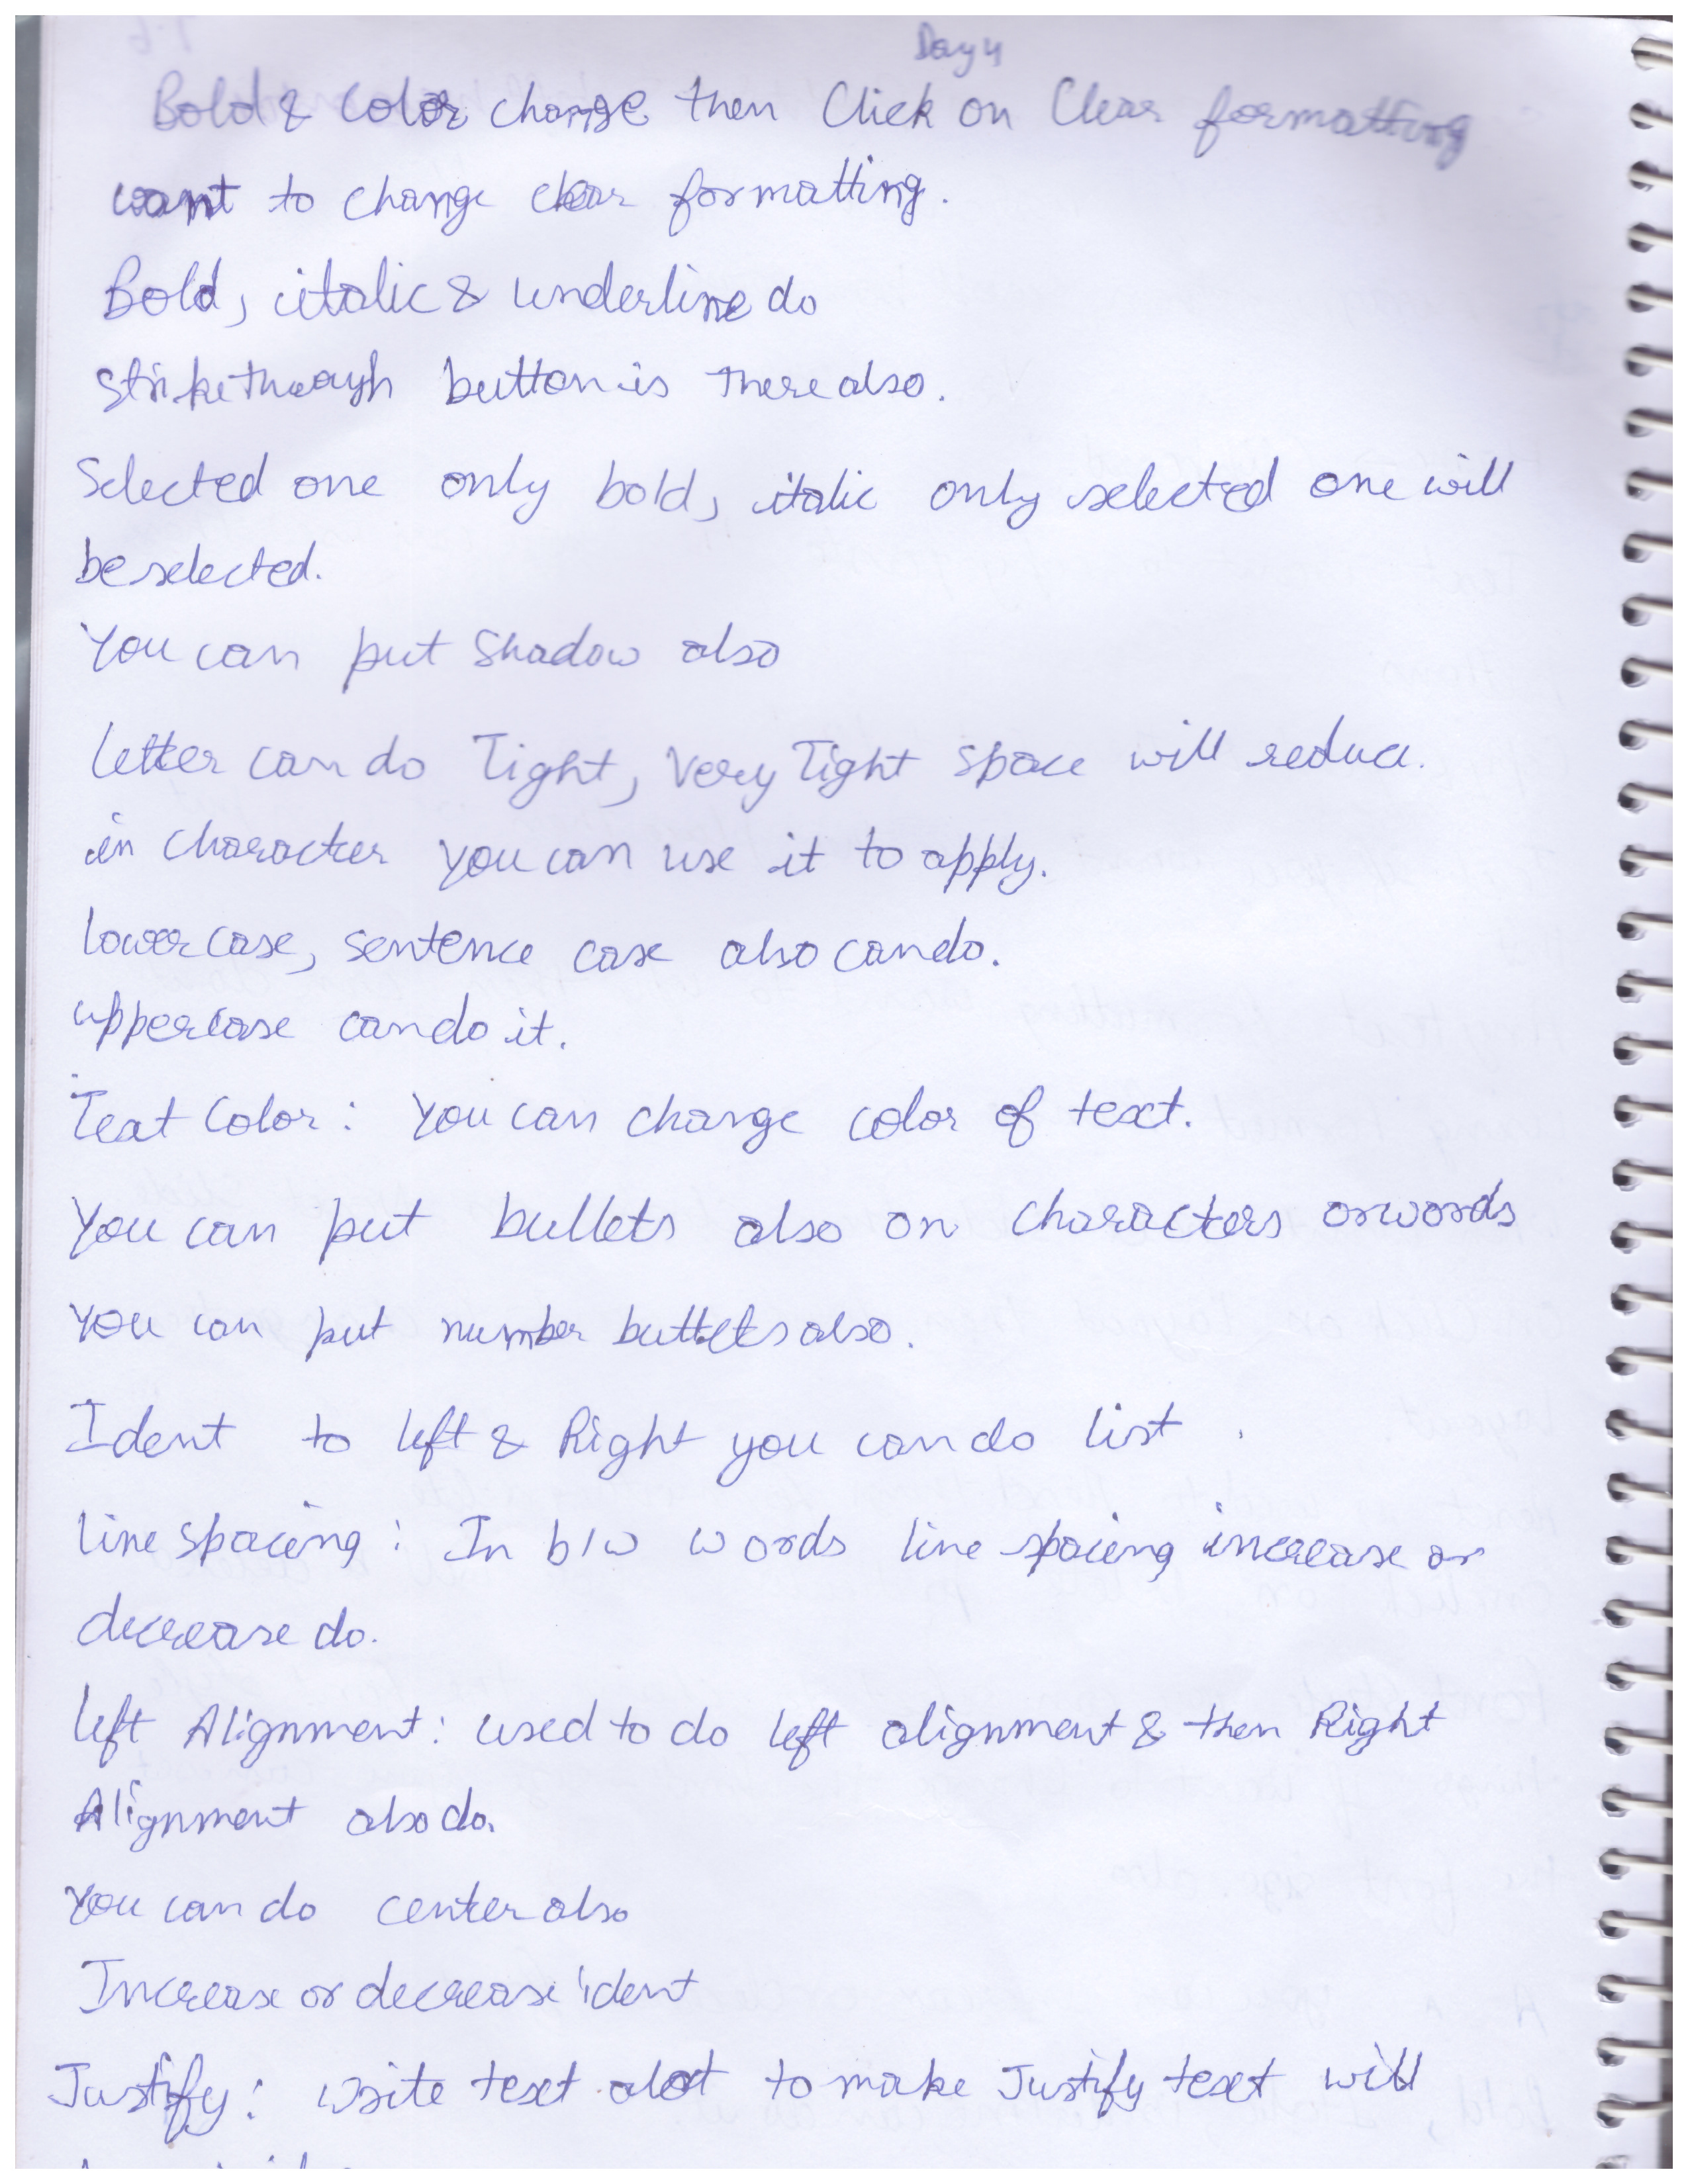 Day 4
Bold & Color change then Click on Clear formatting
want to change clear formatting.
Bold, italic & underline do
Strikethrough button is there also.
Selected one only bold, italic only selected one will
be selected.
You can put Shadow also
Letter can do Tight, Very Tight space will reduce.
in character you can use it to apply.
lowercase, sentence case also can do.
uppercase can do it.
Text Color: You can change color of text.
You can put bullets also on characters or words
You can put number bullets also.
Ident to left & Right you can do list.
line spacing: In b/w words line spacing increase or
decrease do.
left Alignment: used to do left alignment & then Right
Alignment also do.
You can do center also
Increase or decrease ident
Justify: write text alot to make Justify text will